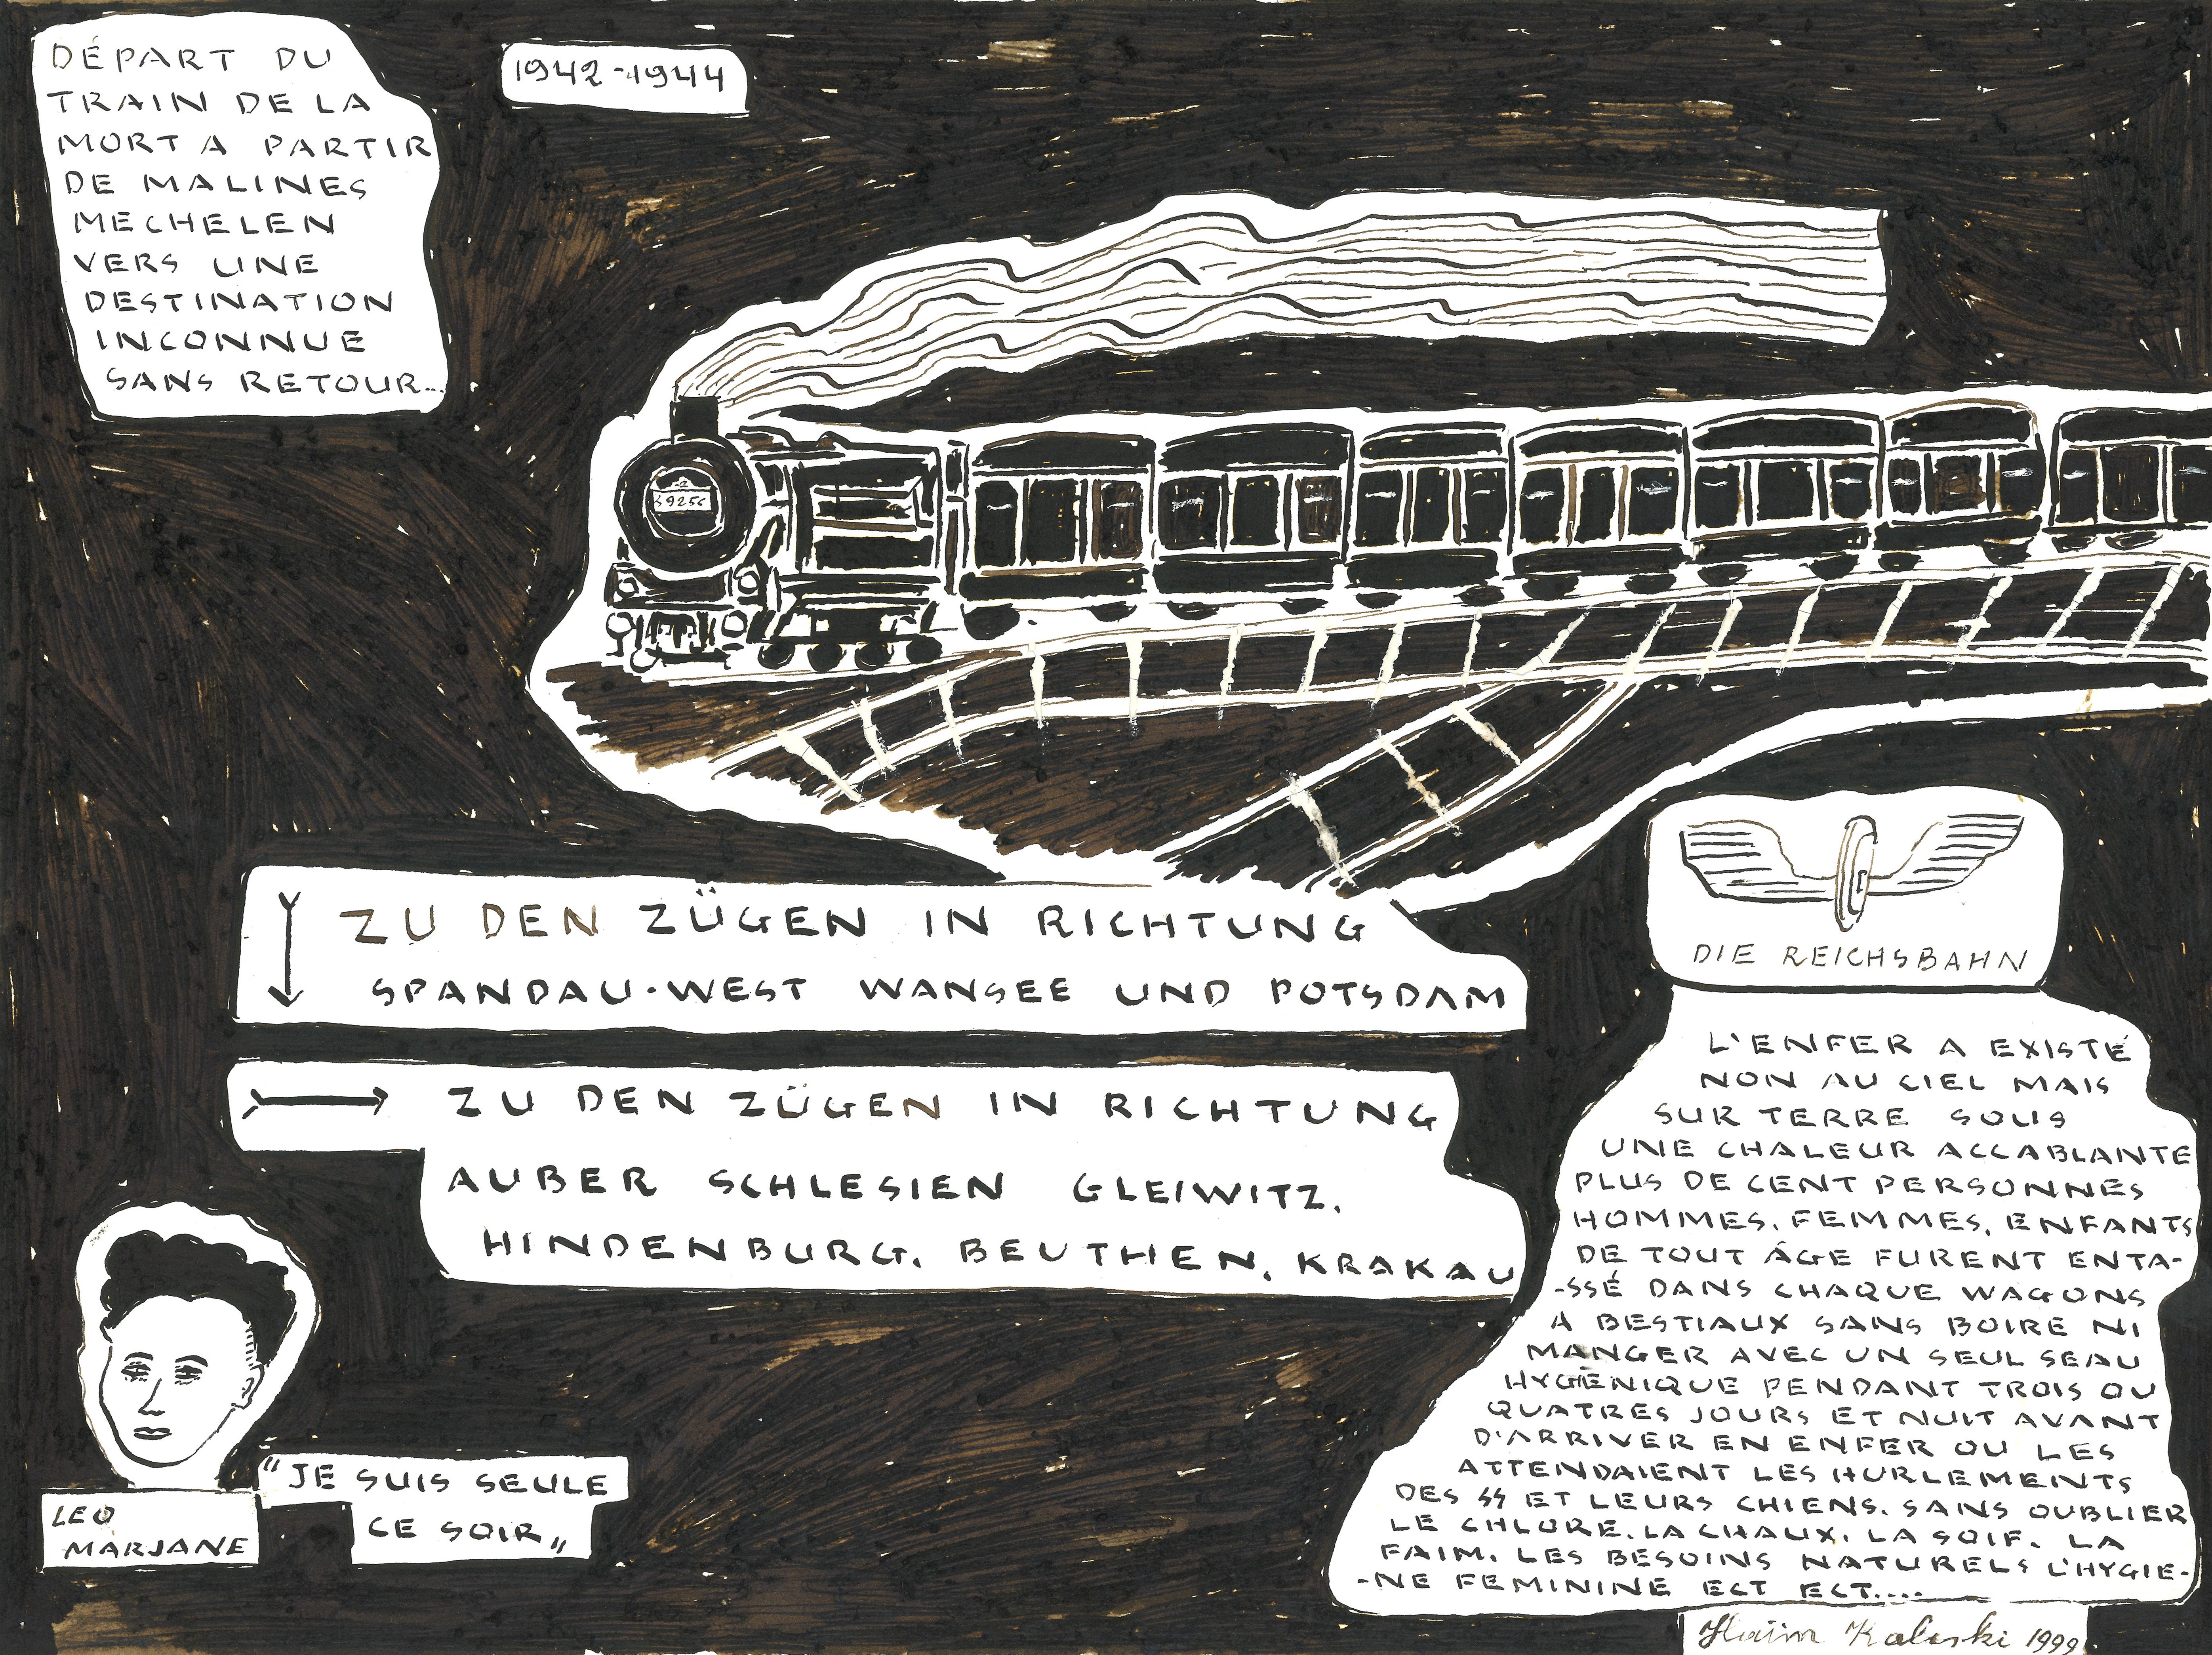 DÉPART DU
TRAIN DE LA
MORT A PARTIR
DE MALINES
MECHELEN
VERS UNE
DESTINATION
INCONNUE
SANS RETOUR...
1942-1944
ZU DEN ZÜGEN IN RICHTUNG
SPANDAU-WEST WANSEE UND POTSDAM
ZU DEN ZÜGEN IN RICHTUNG
AUBER SCHLESIEN GLEIWITZ.
HINDENBURG. BEUTHEN. KRAKAU
LEO
MARJANE
"JE SUIS SEULE
CE SOIR„
DIE REICHSBAHN
L'ENFER A EXISTÉ
NON AU CIEL MAIS
SUR TERRE SOUS
UNE CHALEUR ACCABLANTE
PLUS DE CENT PERSONNES
HOMMES. FEMMES. ENFANTS
DE TOUT ÂGE FURENT ENTA-
-SSÉ DANS CHAQUE WAGONS
A BESTIAUX SANS BOIRE NI
MANGER AVEC UN SEUL SEAU
HYGÉNIQUE PENDANT TROIS OU
QUATRES JOURS ET NUIT AVANT
D'ARRIVER EN ENFER OU LES
ATTENDAIENT LES HURLEMENTS
DES SS ET LEURS CHIENS. SANS OUBLIER
LE CHLORE. LA CHAUX. LA SOIF. LA
FAIM. LES BESOINS NATURELS L'HYGIE-
-NE FEMININE ECT ECT....
Haïm Kaliski 1999